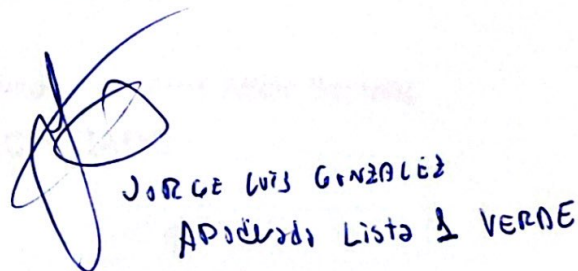 JORGE LUIS GONZALEZ
APoderado Lista 1 VERDE